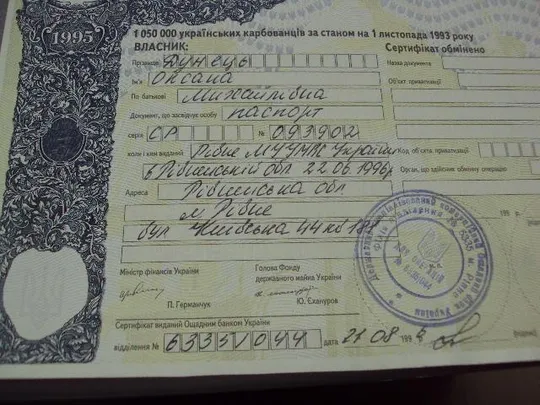 1995
1 050 000 українських карбованців за станом на 1 листопада 1993 року
ВЛАСНИК:
Сертифікат обмінено
Прізвище Дунець
Назва документа
Ім'я Оксана
Об'єкт приватизації
По батькові Михайлівна
Документ, що засвідчує особу паспорт
серія СР № 093902
коли і ким виданий Рівне МУУМВ України
Код об'єкта приватизації
в Рівненській обл 22.06.1996р
Орган, що здійснив обмінну операцію
Адреса Рівненська обл.
м. Рівне
199 р.
вул Київська 44 кв
Міністр фінансів України
Голова Фонду державного майна України
П. Германчук
Ю. Єхануров
Сертифікат виданий Ощадним банком України
відділення № 6335/044 дата 27 08 199
(підпис)